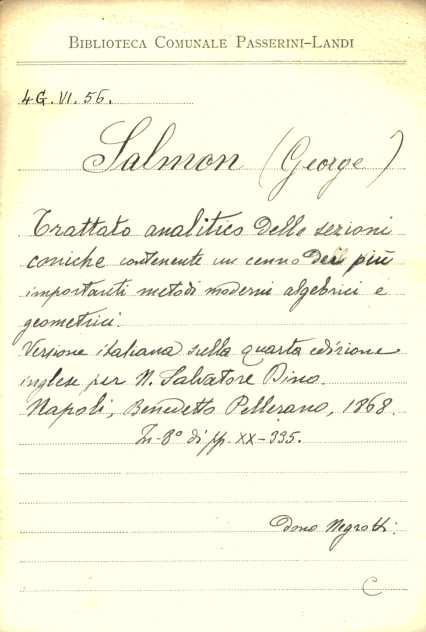 BIBLIOTECA COMUNALE PASSERINI-LANDI
4G. VI. 56.
Salmon (George)
Trattato analitico delle sezioni
coniche contenente un cenno dei più
importanti metodi moderni algebrici e
geometrici.
Versione italiana sulla quarta edizione
inglese per N. Salvatore Dino.
Napoli, Benedetto Pellerano, 1868.
In-8° di pp. XX-335.
dono Negrotti.
C